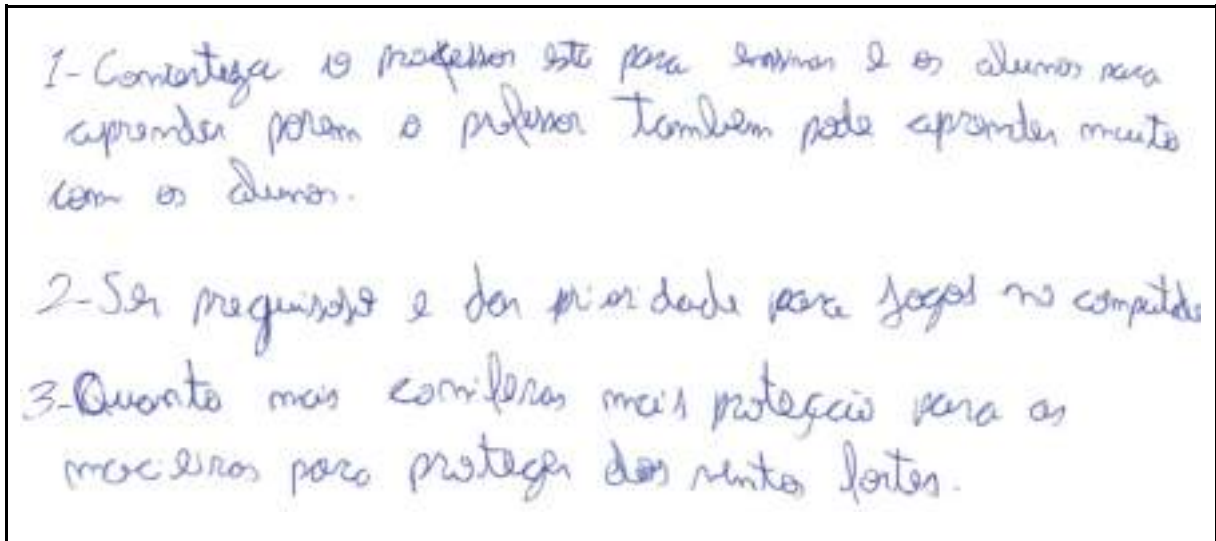 1- Comcerteza o professor esta para ensinar e os alunos para
aprender porem o professor tambem pode aprender muito
com os alunos.
2- Ser preguisoso e dar prioridade para jogos no computado
3- Quanto mais coniferas mais proteção para as
macieiras para proteger dos ventos fortes.